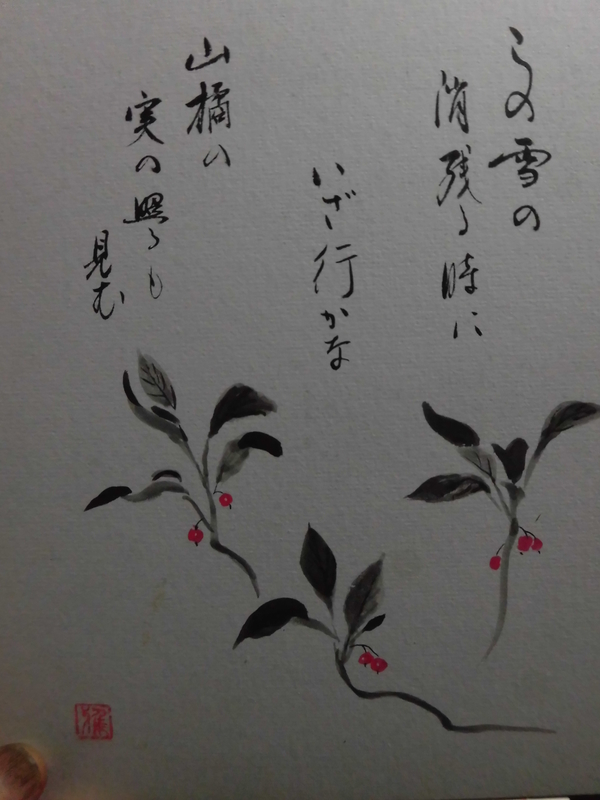 この雪の
消残る時に
いざ行かな
山橘の
実の照るも
見む